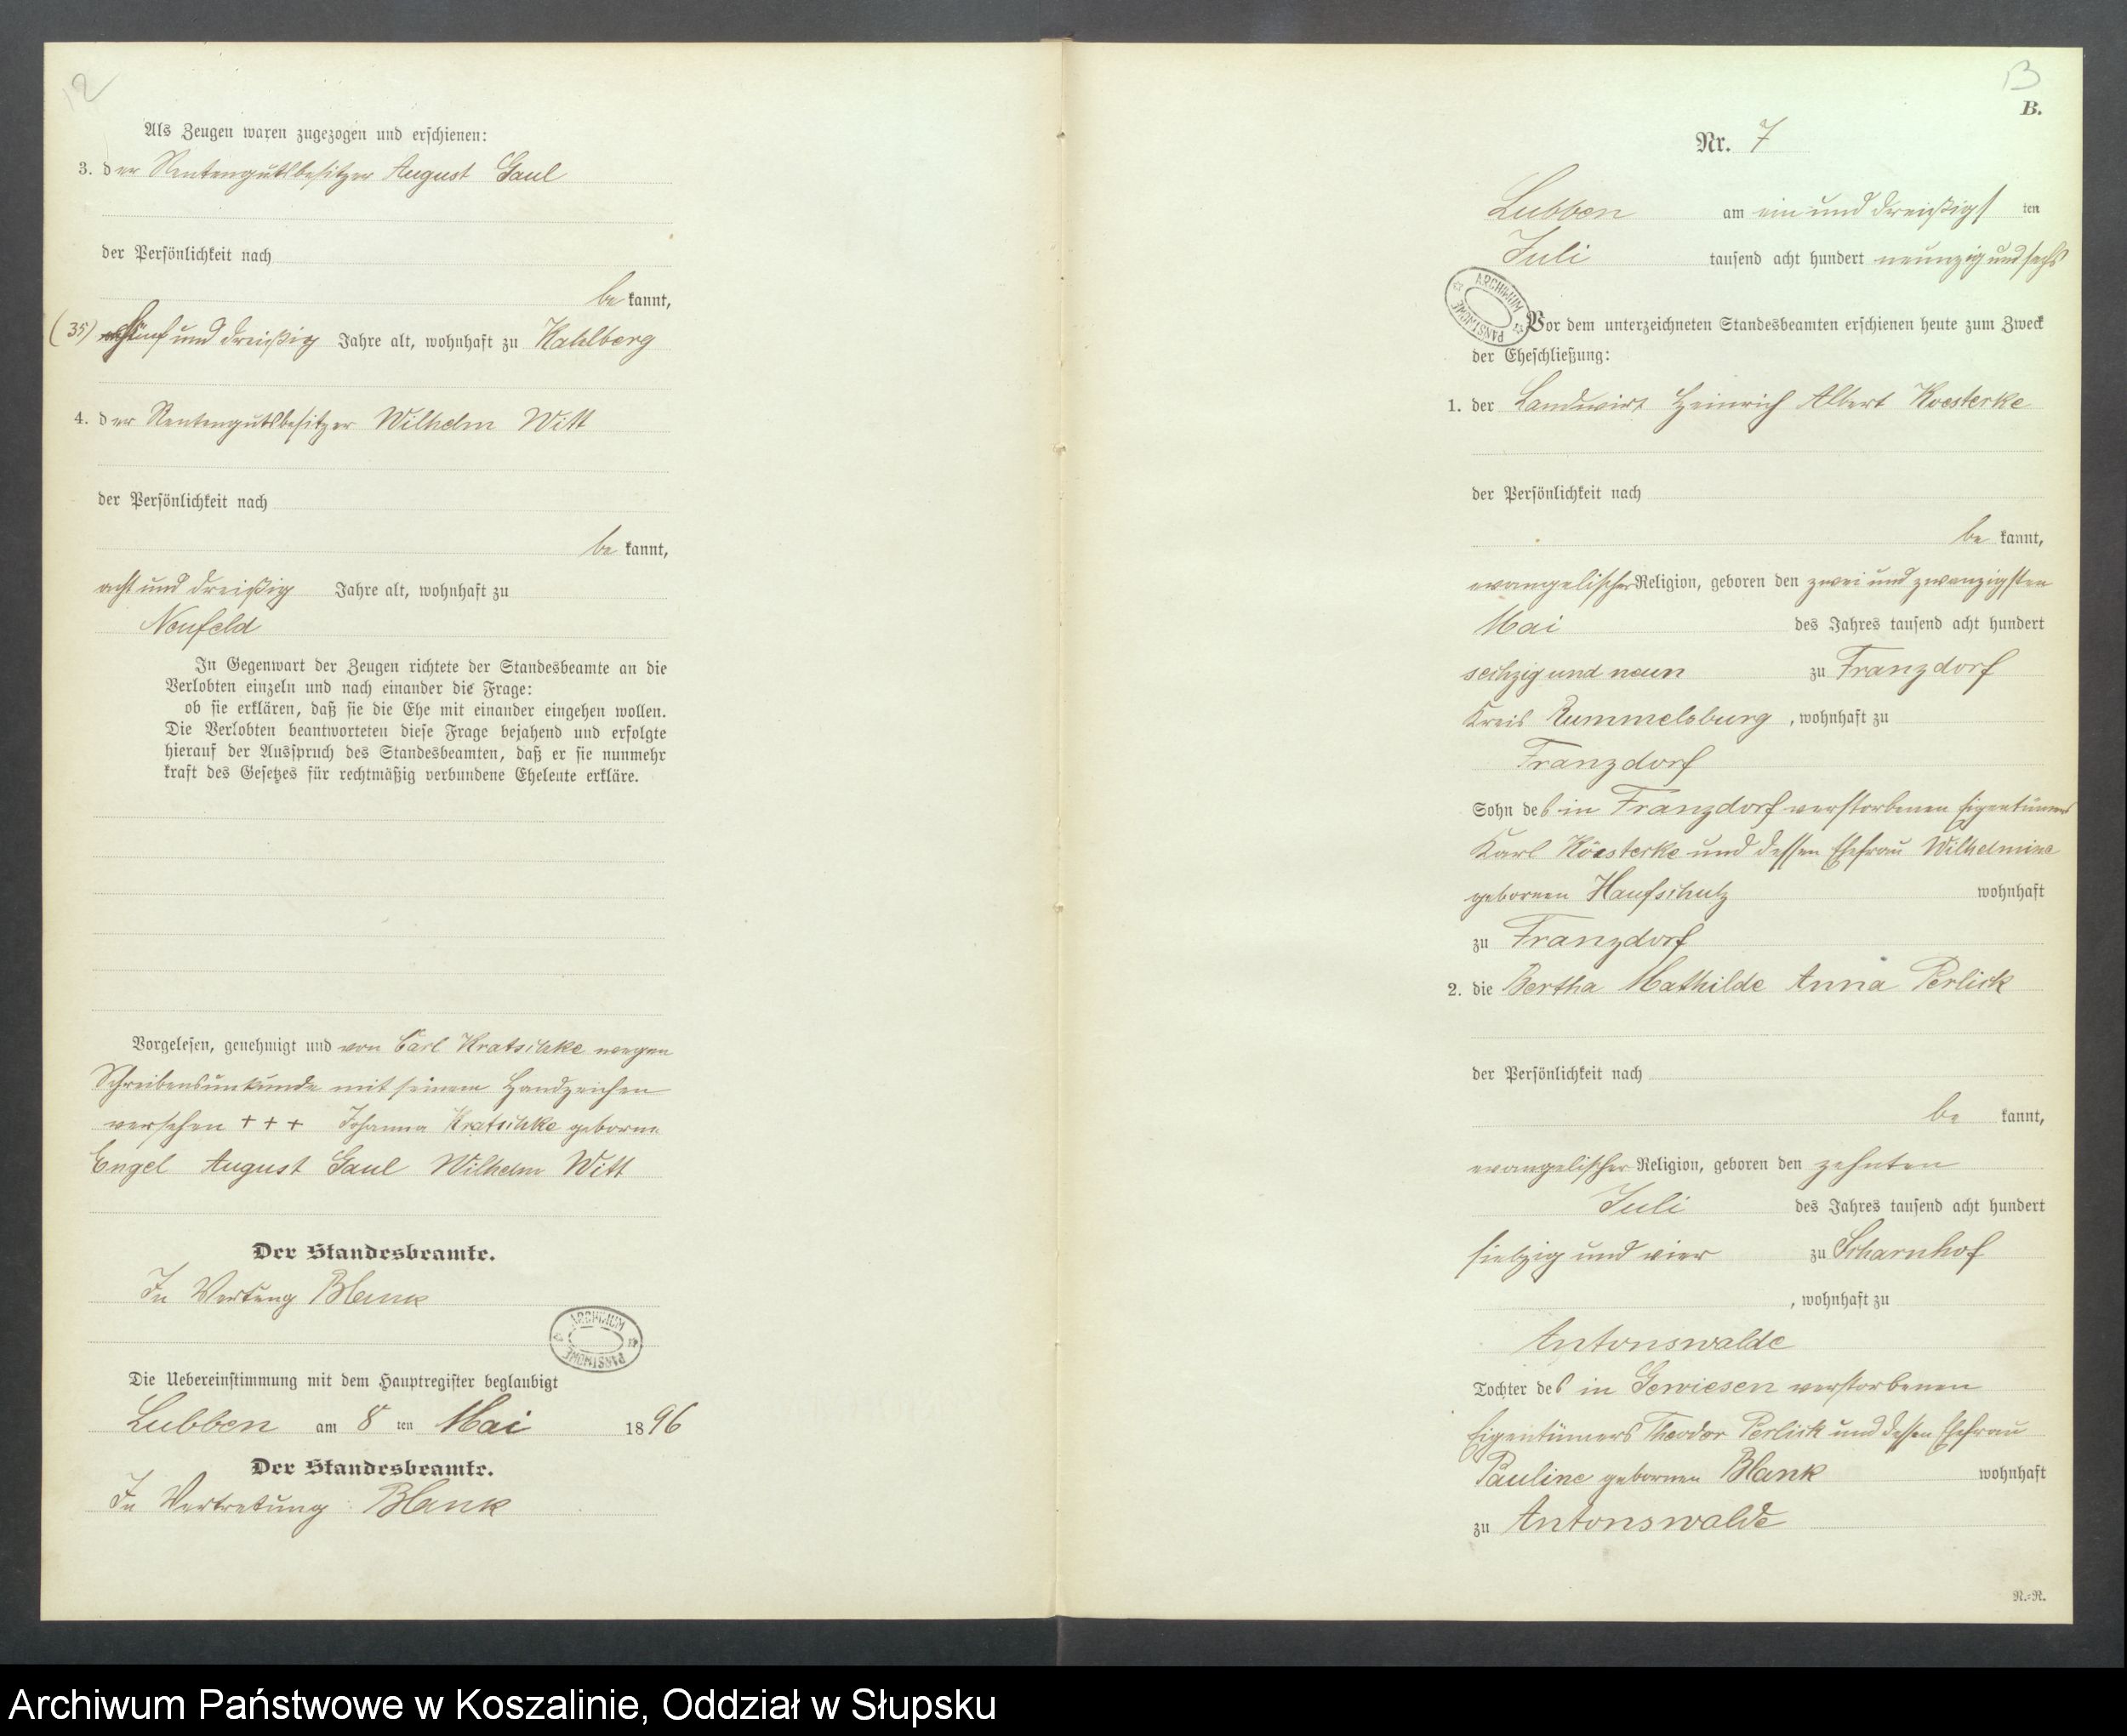 12
Als Zeugen waren zugezogen und erschienen:
3. der Rentengutsbesitzer August Gaul
der Persönlichkeit nach
be kannt,
(35) fünf und dreißig Jahre alt, wohnhaft zu Kahlberg
4. der Rentengutsbesitzer Wilhelm Witt
der Persönlichkeit nach
be kannt,
acht und dreißig Jahre alt, wohnhaft zu
Neufeld
In Gegenwart der Zeugen richtete der Standesbeamte an die
Verlobten einzeln und nach einander die Frage:
ob sie erklären, daß sie die Ehe mit einander eingehen wollen.
Die Verlobten beantworteten diese Frage bejahend und erfolgte
hierauf der Ausspruch des Standesbeamten, daß er sie nunmehr
kraft des Gesetzes für rechtmäßig verbundene Eheleute erkläre.
Vorgelesen, genehmigt und von Carl Kratschke wegen
Schreibensunkunde mit seinem Handzeichen
versehen + + + Johanna Kratschke geborne
Engel August Gaul Wilhelm Witt
Der Standesbeamte.
In Vertung Blank
ARCHIWUM PAŃSTWOWE
Die Uebereinstimmung mit dem Hauptregister beglaubigt
Lubben am 8 ten Mai 1896
Der Standesbeamte.
In Vertretung Blank
13
B.
Nr. 7
Lubben am ein und dreißigs ten
Juli tausend acht hundert neunzig und sechs
ARCHIWUM PAŃSTWOWE
Vor dem unterzeichneten Standesbeamten erschienen heute zum Zweck
der Eheschließung:
1. der Landwirt Heinrich Albert Koesterke
der Persönlichkeit nach
be kannt,
evangelischer Religion, geboren den zwei und zwanzigsten
Mai des Jahres tausend acht hundert
sechzig und neun zu Franzdorf
Kreis Rummelsburg, wohnhaft zu
Franzdorf
Sohn des in Franzdorf verstorbenen Eigentümers
Karl Köesterke und dessen Ehefrau Wilhelmine
gebornen Haufschulz wohnhaft
zu Franzdorf
2. die Bertha Mathilde Anna Perlick
der Persönlichkeit nach
be kannt,
evangelischer Religion, geboren den zehnten
Juli des Jahres tausend acht hundert
siebzig und vier zu Scharnhof
, wohnhaft zu
Antonswalde
Tochter des in Gewiesen verstorbenen
Eigentümers Theodor Perlick und dessen Ehefrau
Pauline gebornen Blank wohnhaft
zu Antonswalde
R.=R.
Archiwum Państwowe w Koszalinie, Oddział w Słupsku